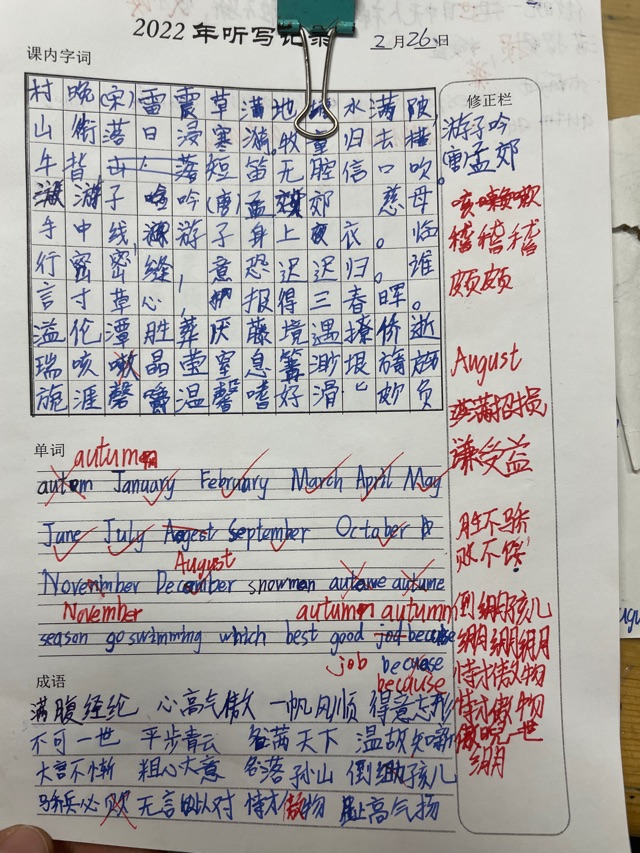 2022年听写记录 2月26日
课内字词
修正栏
村晚(宋)雷震草满地塘水满陂,
山衔落日浸寒漪。牧童归去横
牛背,短笛无腔信口吹。
游子吟(唐)孟郊 慈母
手中线,游子身上衣。临
行密密缝,意恐迟迟归。谁
言寸草心,报得三春晖。
溢伦潭胜葬厌藤境遇撩侨逝
瑞咳嗽晶莹窒息篝渺垠旖
旎涯馨嚼温馨嗜好滑 负
游子吟
唐孟郊
咳嗽嗽
稽稽稽
颇颇
August
满招损
谦受益
胜不骄
败不馁
倒绷孩儿
绷绷绷
恃才傲物
恃才傲物
傲睨一世
绷
单词
autumn
autom January February March April May
June July Augest September October
August
Novenmber December snowman autume autume
November autumn autumn
season go swimming which best good jod because
job becuase
because
成语
满腹经纶 心高气傲 一帆风顺 得意忘形
不可一世 平步青云 名满天下 温故知新
大言不惭 粗心大意 名落孙山 倒绷孩儿
骄兵必败 无言以对 恃才傲物 趾高气扬